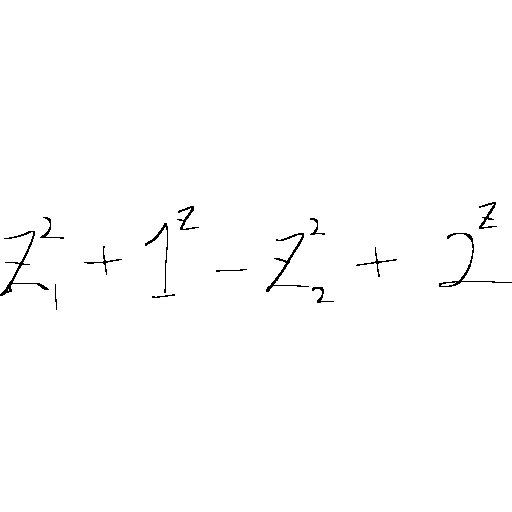 Z₁² + 1ᶻ - Z₂² + 2ᶻ